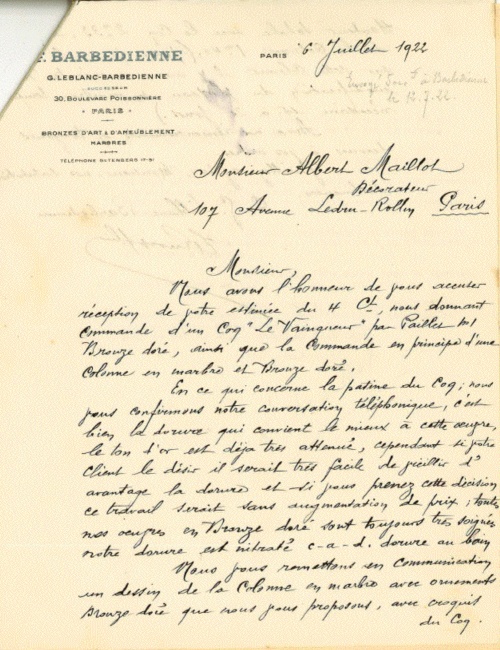 F. BARBEDIENNE
G. LEBLANC-BARBEDIENNE
SUCCESSEUR
30, BOULEVARD POISSONNIÈRE
PARIS
BRONZES D'ART & D'AMEUBLEMENT
MARBRES
TÉLÉPHONE GUTENBERG 17-91
PARIS 6 Juillet 1922
le 12.7.22
Monsieur Albert Maillot
Décorateur
107 Avenue Ledru-Rollin Paris
Monsieur,
Nous avons l'honneur de vous accuser
réception de votre estimée du 4 Ct, nous donnant
commande d'un Coq "Le Vainqueur" par Paillet
Bronze doré, ainsi que la Commande en principe d'une
Colonne en marbre et Bronze doré.
En ce qui concerne la patine du Coq, nous
vous confirmons notre conversation téléphonique, c'est
bien la dorure qui convient le mieux à cette œuvre,
le ton d'or est déjà très attenué, cependant si votre
client le désir il serait très facile de vieillir d'
avantage la dorure et si vous prenez cette décision
ce travail serait sans augmentation de prix ; toutes
nos œuvres en Bronze doré sont toujours très soignés
notre dorure est nitraté c-a-d. dorure au bain
Nous vous remettons en communication
un dessin de la Colonne en marbre avec ornements
Bronze doré que nous vous proposons, avec croquis
du Coq.